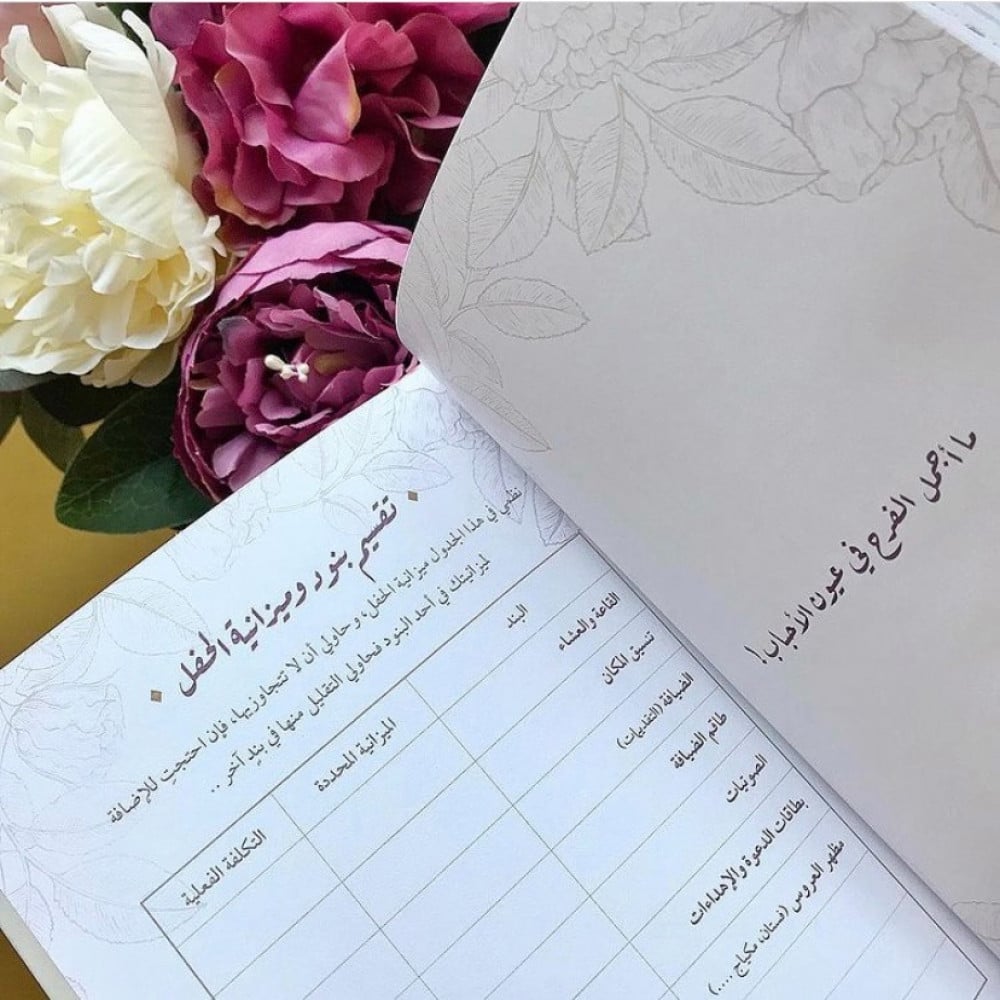 ما أجمل الفرح في عيون الأحباب!
تقسيم بنود وميزانية الحفل
نظمي في هذا الجدول ميزانية الحفل، وحاولي أن لا تتجاوزيها، فإن احتجتِ للإضافة
لميزانيتك في أحد البنود فحاولي التقليل منها في بندٍ آخر ..
البند
الميزانية المحددة
التكلفة الفعلية
القاعة والعشاء
تنسيق المكان
الضيافة (التقديمات)
طاقم الضيافة
الصوتيات
بطاقات الدعوة والإهداءات
مظهر العروس (فستان، مكياج .....)